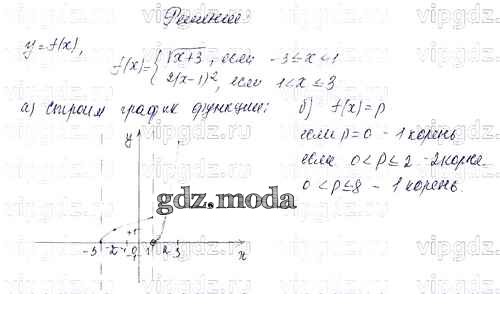 Решение
y=f(x),
f(x)={√x+3, если -3≤x≤1
2(x-1)², если 1<x≤3
а) Строим график функции:
б) f(x)=p
если p=0 - 1 корень
если 0<p≤2 - 2 корня
0<p≤8 - 1 корень.
y
gdz.moda
+1
-3 -2 -1 0 1 2 3 x
-1
vipgdz.ru